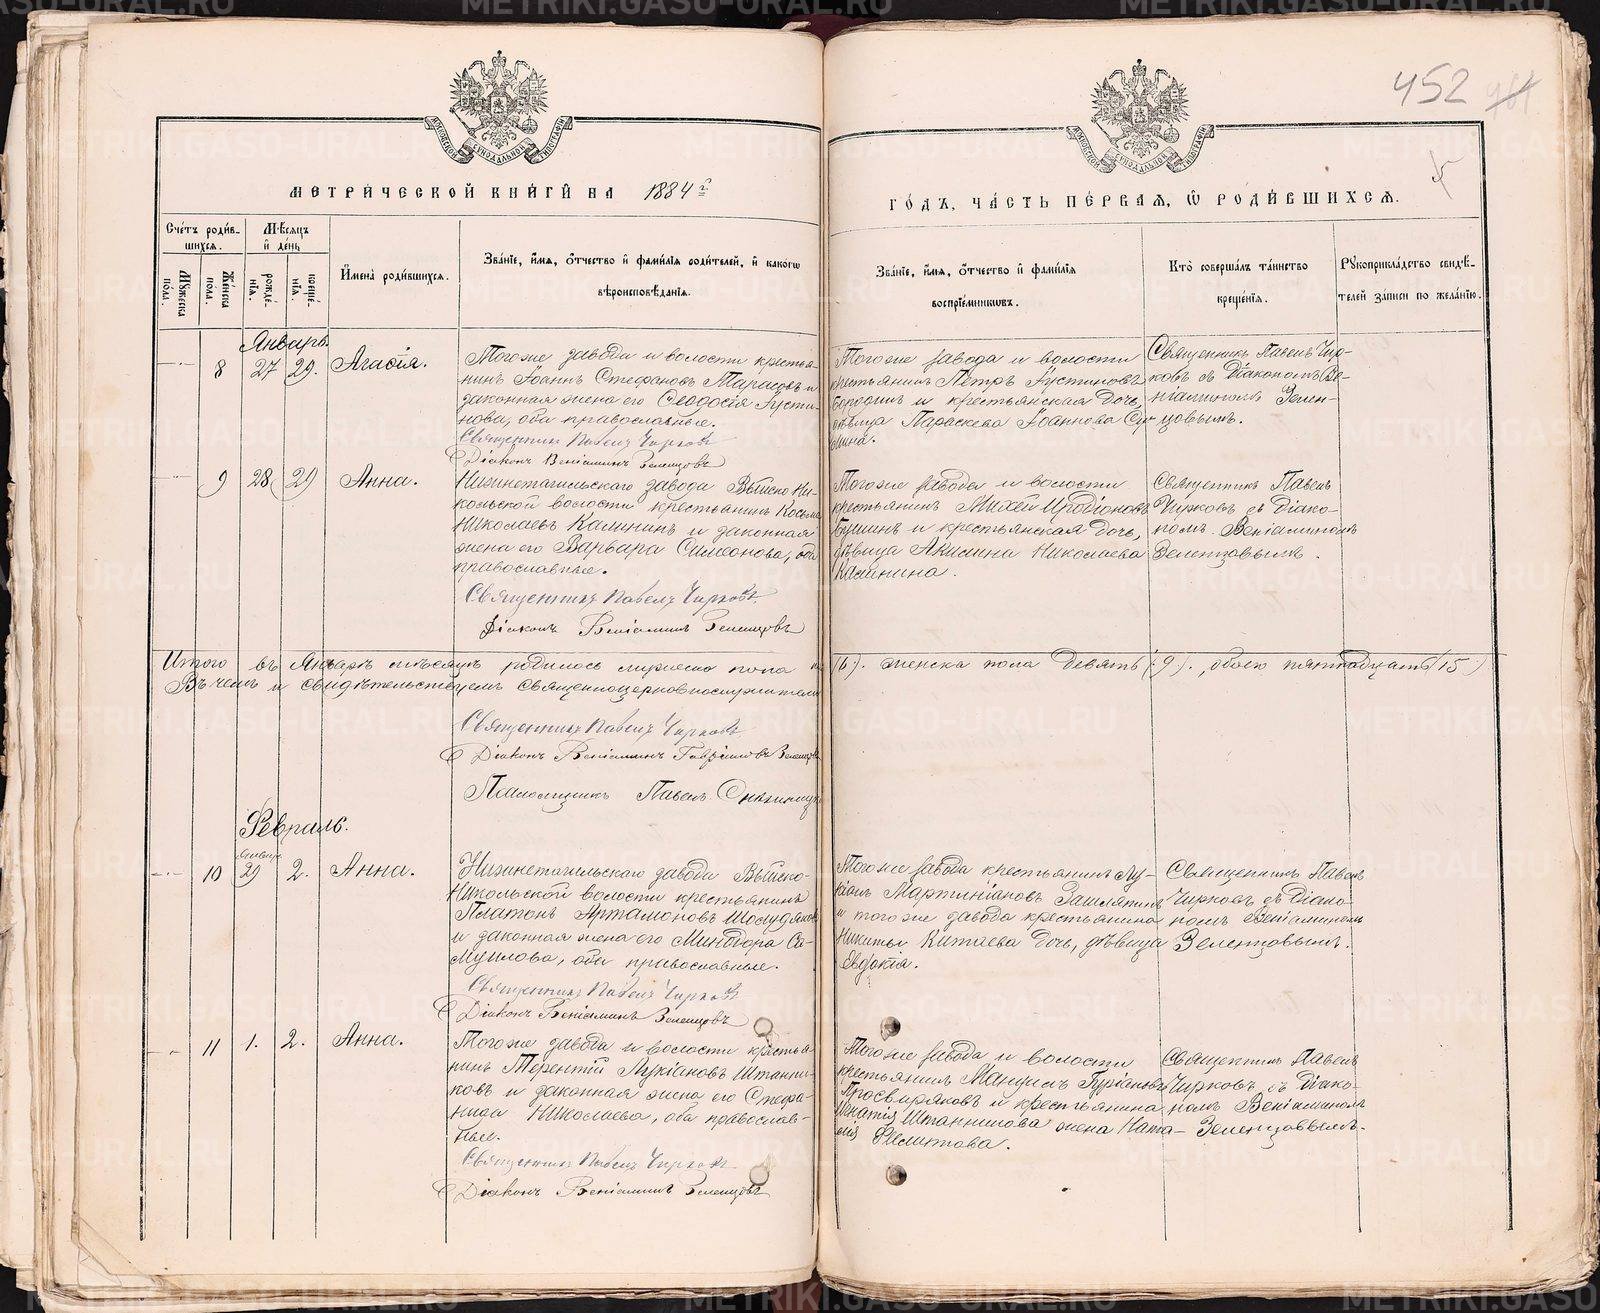 452
МОСКОВСКОЙ СѴНОДАЛЬНОЙ ТИПОГРАФІИ
МОСКОВСКОЙ СѴНОДАЛЬНОЙ ТИПОГРАФІИ
МЕТРИЧЕСКОЙ КНИГИ НА 1884 г.
ГОДЪ, ЧАСТЬ ПЕРВАЯ, Ѡ РОДИВШИХСЯ.
Счетъ родив-
шихся.
Мужеска пола.
Женска пола.
Мѣсяцъ и день
рожде-
нія.
креще-
нія.
Имена родившихся.
Званіе, имя, отчество и фамилія родителей, и какогѡ
вѣроисповѣданія.
Званіе, имя, отчество и фамилія
воспріемникѡвъ.
Кто совершалъ таинство
крещенія.
Рукоприкладство свидѣ-
телей записи по желанію.
Январь
8 27 29. Агафія.
Тогоже завода и волости крестья-
нинъ Іоаннъ Стефановъ Тарасовъ и
законная жена его Ѳеодосія Густи-
нова, оба православные.
Священникъ Павелъ Чирковъ
Діаконъ Веніаминъ Зеленцовъ
Тогоже завода и волости
крестьянинъ Петръ Іустиновъ
Бородинъ и крестьянская дочь,
дѣвица Параскева Іоаннова
Священникъ Павелъ Чир-
ковъ съ Діакономъ Ве-
ніаминомъ Зелен-
цовымъ.
9 28 29 Анна.
Нижнетагильскаго завода Выйско Ни-
кольской волости крестьянинъ Косьма
Николаевъ Калининъ и законная
жена его Варвара Симеонова, оба
православные.
Священникъ Павелъ Чирковъ
Діаконъ Веніаминъ Зеленцовъ
Тогоже завода и волости
крестьянинъ Михей Иродіоновъ
и крестьянская дочь,
дѣвица Акилина Николаева
Калинина.
Священникъ Павелъ
Чирковъ съ Діако-
номъ Веніаминомъ
Зеленцовымъ.
Итого въ Январѣ мѣсяцѣ родилось мужеска пола
(6). женска пола девять (9)., обоего пятнадцать (15)
Въ чемъ и свидѣтельствуемъ Священноцерковнослужители
Священникъ Павелъ Чирковъ
Діаконъ Веніаминъ Гавріиловъ Зеленцовъ
Псаломщикъ Павелъ
Февраль.
10 Январ. 29 2. Анна.
Нижнетагильскаго завода Выйско-
Никольской волости крестьянинъ
Платонъ Артамоновъ Шолудяковъ
и законная жена его Минодора Са-
муилова, оба православные.
Священникъ Павелъ Чирковъ
Діаконъ Веніаминъ Зеленцовъ
Тогоже завода крестьянинъ Лу-
кіанъ Мартиніановъ Зашляпинъ
и тогоже завода крестьянина
Никиты Китаева дочь, дѣвица
Евдокія.
Священникъ Павелъ
Чирковъ съ Діако-
номъ Веніаминомъ
Зеленцовымъ.
11 1. 2. Анна.
Тогоже завода и волости крестья-
нинъ Терентій Лукіановъ Штанни-
ковъ и законная жена его Стефа-
нида Николаева, оба православ-
ные.
Священникъ Павелъ Чирковъ
Діаконъ Веніаминъ Зеленцовъ
Тогоже завода и волости
крестьянинъ Гуріановъ
Просвиряковъ и крестьянина
Игнатія Штанникова жена Ната-
лія Филиппова.
Священникъ Павелъ
Чирковъ съ Діако-
номъ Веніаминомъ
Зеленцовымъ.
METRIKI.GASO-URAL.RU